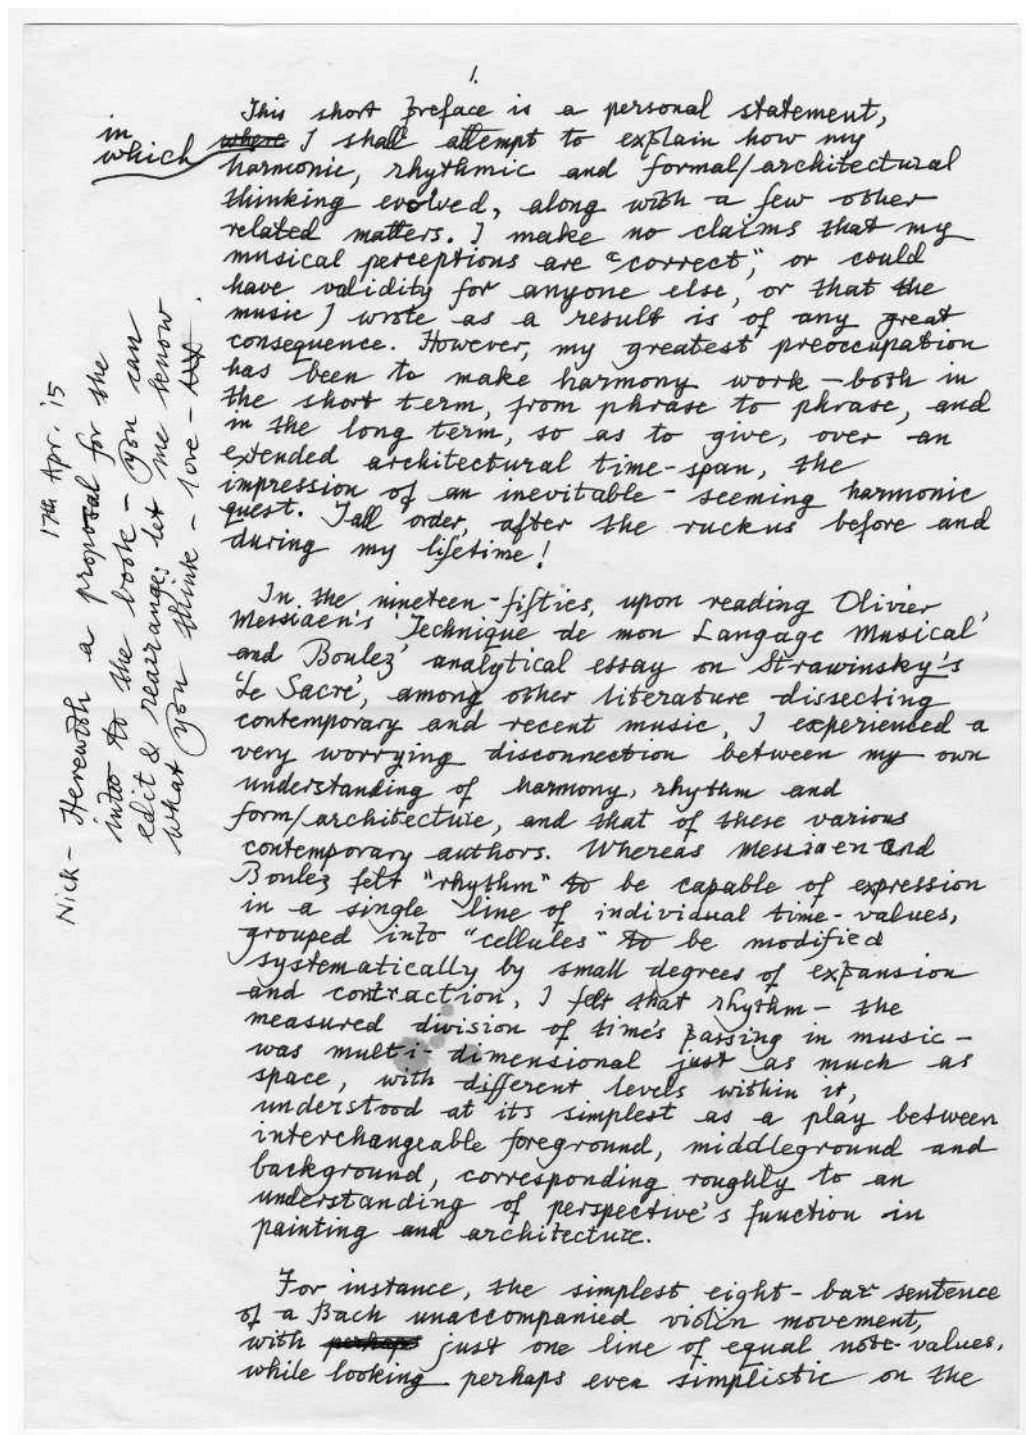 1.
This short preface is a personal statement,
in
which
where I shall attempt to explain how my
harmonic, rhythmic and formal/architectural
thinking evolved, along with a few other
related matters. I make no claims that my
musical perceptions are "correct", or could
have validity for anyone else, or that the
music I wrote as a result is of any great
consequence. However, my greatest preoccupation
has been to make harmony work – both in
the short term, from phrase to phrase, and
in the long term, so as to give, over an
extended architectural time-span, the
impression of an inevitable-seeming harmonic
quest. Tall order, after the ruckus before and
during my lifetime!
In the nineteen-fifties, upon reading Olivier
Messiaen's 'Technique de mon Langage Musical'
and Boulez' analytical essay on Strawinsky's
'Le Sacre', among other literature dissecting
contemporary and recent music, I experienced a
very worrying disconnection between my own
understanding of harmony, rhythm and
form/architecture, and that of these various
contemporary authors. Whereas Messiaen and
Boulez felt "rhythm" to be capable of expression
in a single line of individual time-values,
grouped into "cellules" to be modified
systematically by small degrees of expansion
and contraction, I felt that rhythm – the
measured division of time's passing in music –
was multi-dimensional just as much as
space, with different levels within it,
understood at its simplest as a play between
interchangeable foreground, middleground and
background, corresponding roughly to an
understanding of perspective's function in
painting and architecture.
For instance, the simplest eight-bar sentence
of a Bach unaccompanied violin movement,
with perhaps just one line of equal note-values,
while looking perhaps even simplistic on the
17th Apr. 15
Nick – Herewith a proposal for the
into to the book – you can
edit & rearrange; let me know
what you think – love –